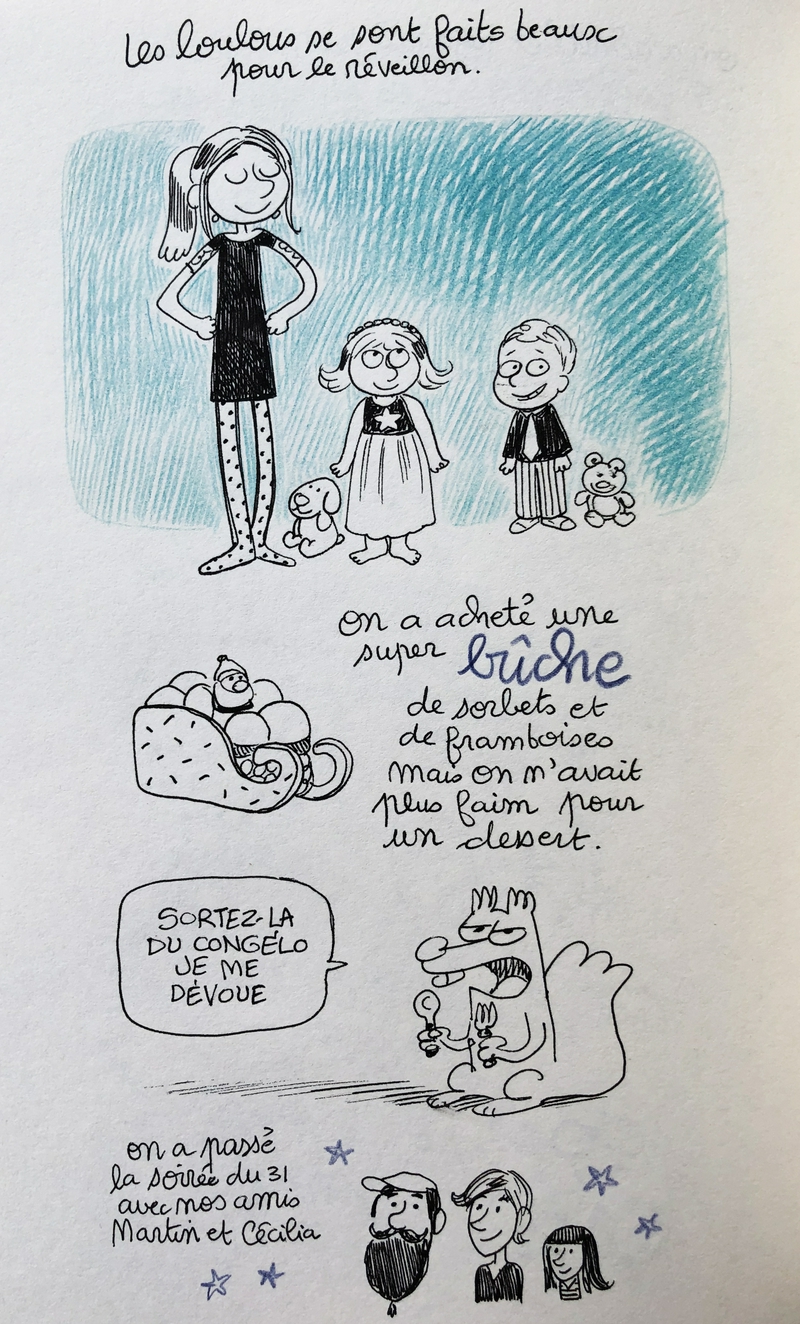 Les loulous se sont faits beaux
pour le réveillon.
on a acheté une
super bûche
de sorbets et
de framboises
mais on n'avait
plus faim pour
un dessert.
SORTEZ-LA
DU CONGÉLO
JE ME
DÉVOUE
on a passé
la soirée du 31
avec nos amis
Martin et Cécilia